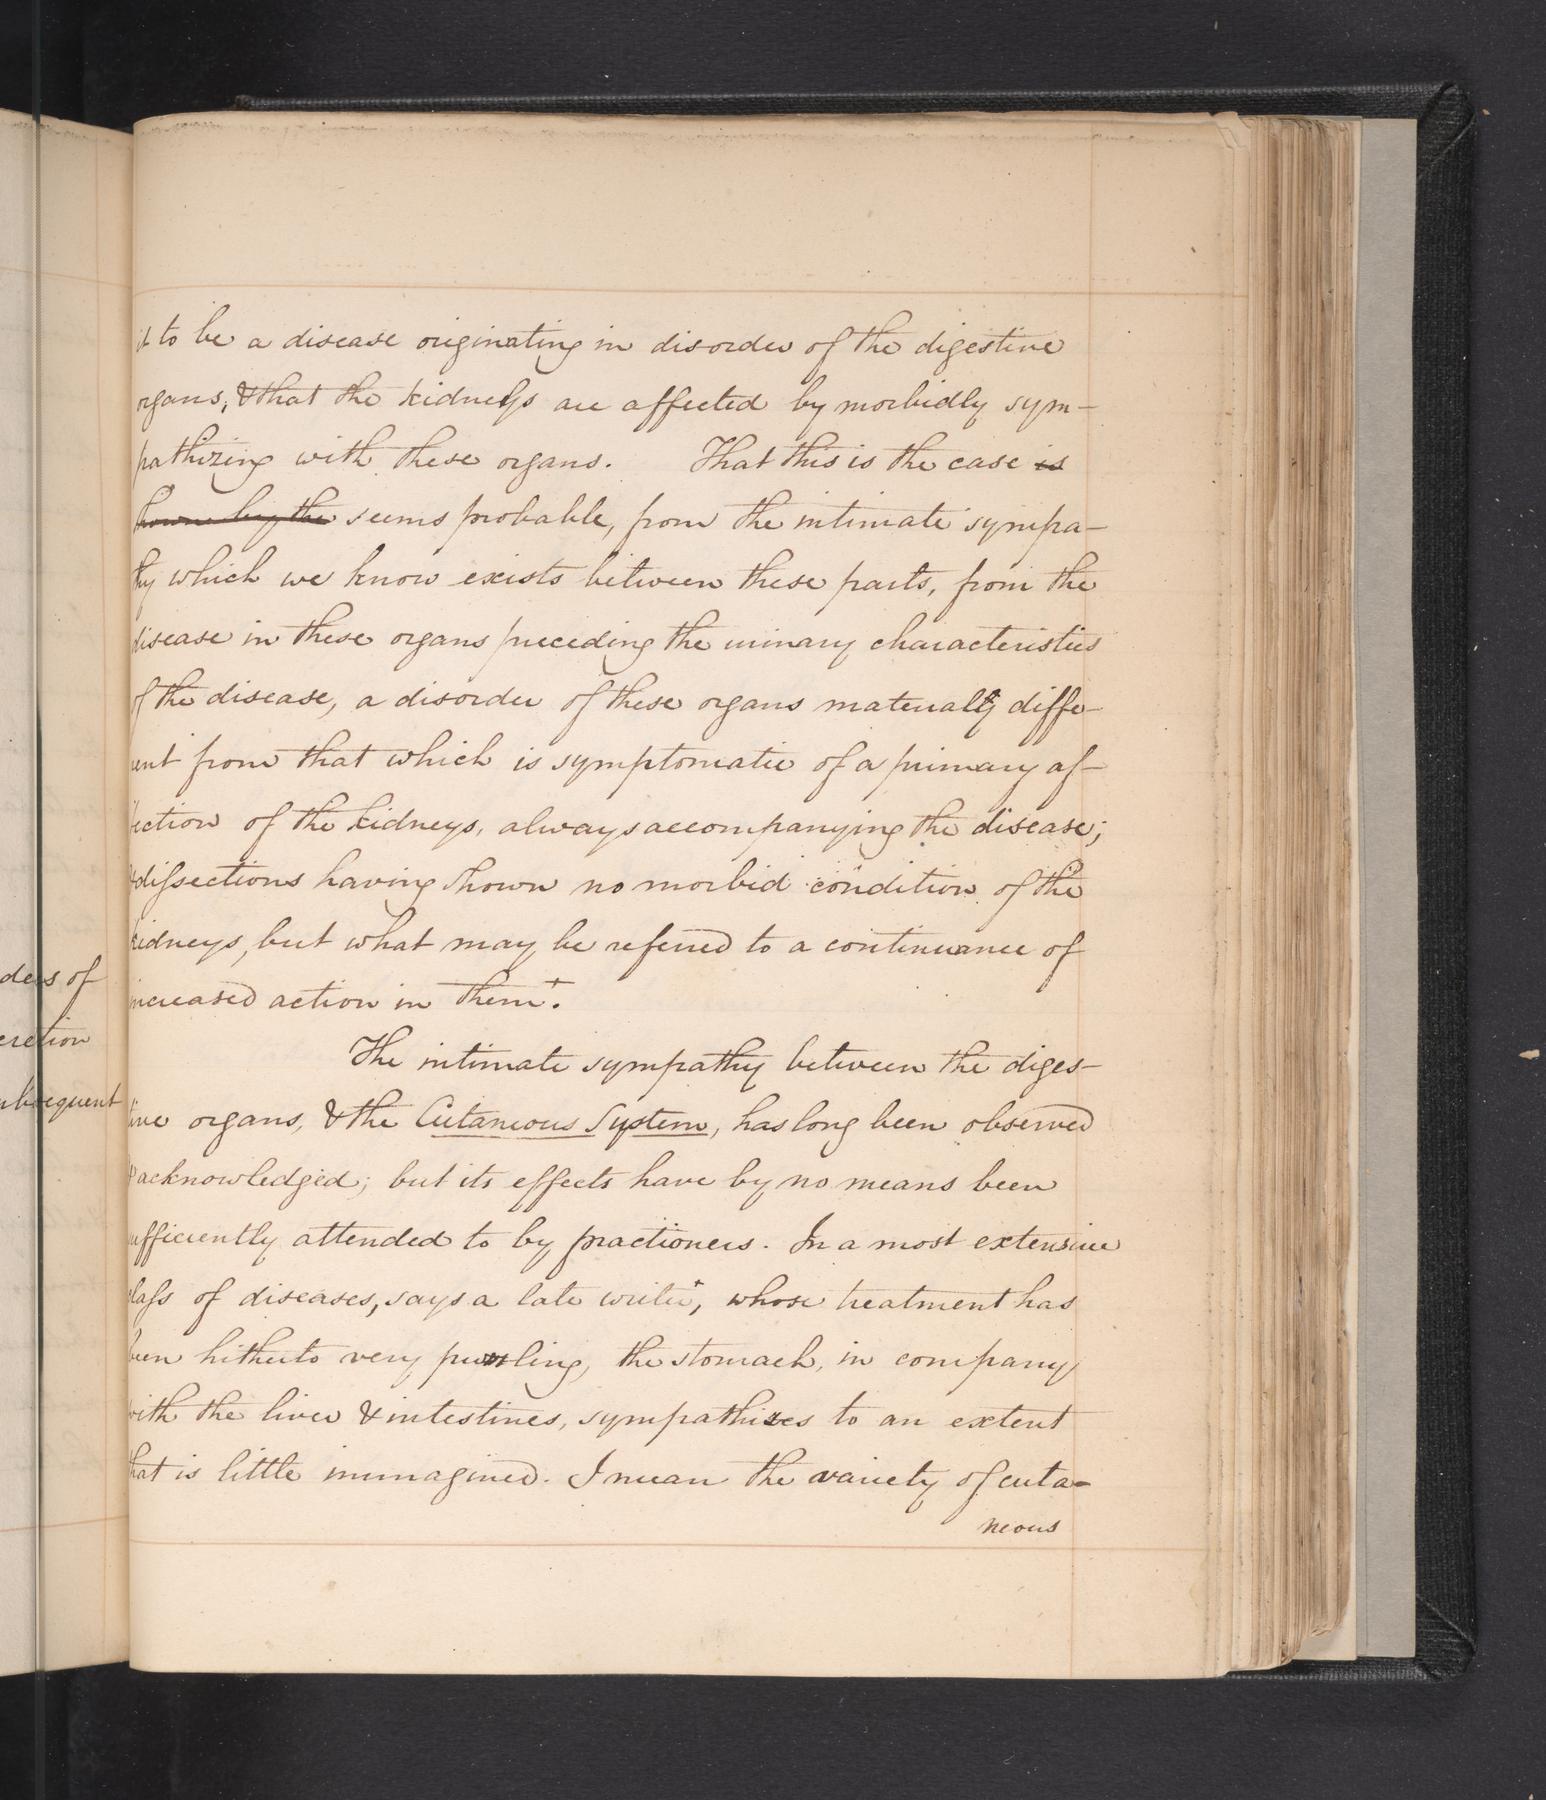 it to be a disease originating in disorder of the digestive
organs, & that the kidneys are affected by morbidly sym-
pathizing with these organs. That this is the case is
shown by the seems probable, from the intimate sympa-
thy which we know exists between these parts, from the
disease in these organs preceding the urinary characteristics
of the disease, a disorder of these organs materially diffe-
rent from that which is symptomatic of a primary af-
fection of the kidneys, always accompanying the disease;
& dissections having shown no morbid condition of the
kidneys, but what may be referred to a continuance of
increased action in them+.
The intimate sympathy between the diges-
tive organs, & the Cutaneous System, has long been observed
& acknowledged; but its effects have by no means been
sufficiently attended to by practioners. In a most extensive
class of diseases, says a late writer+, whose treatment has
been hitherto very puzzling, the stomach, in company
with the liver & intestines, sympathizes to an extent
that is little immagined. I mean the variety of cuta-
neous
ders of
cretion
subsequent